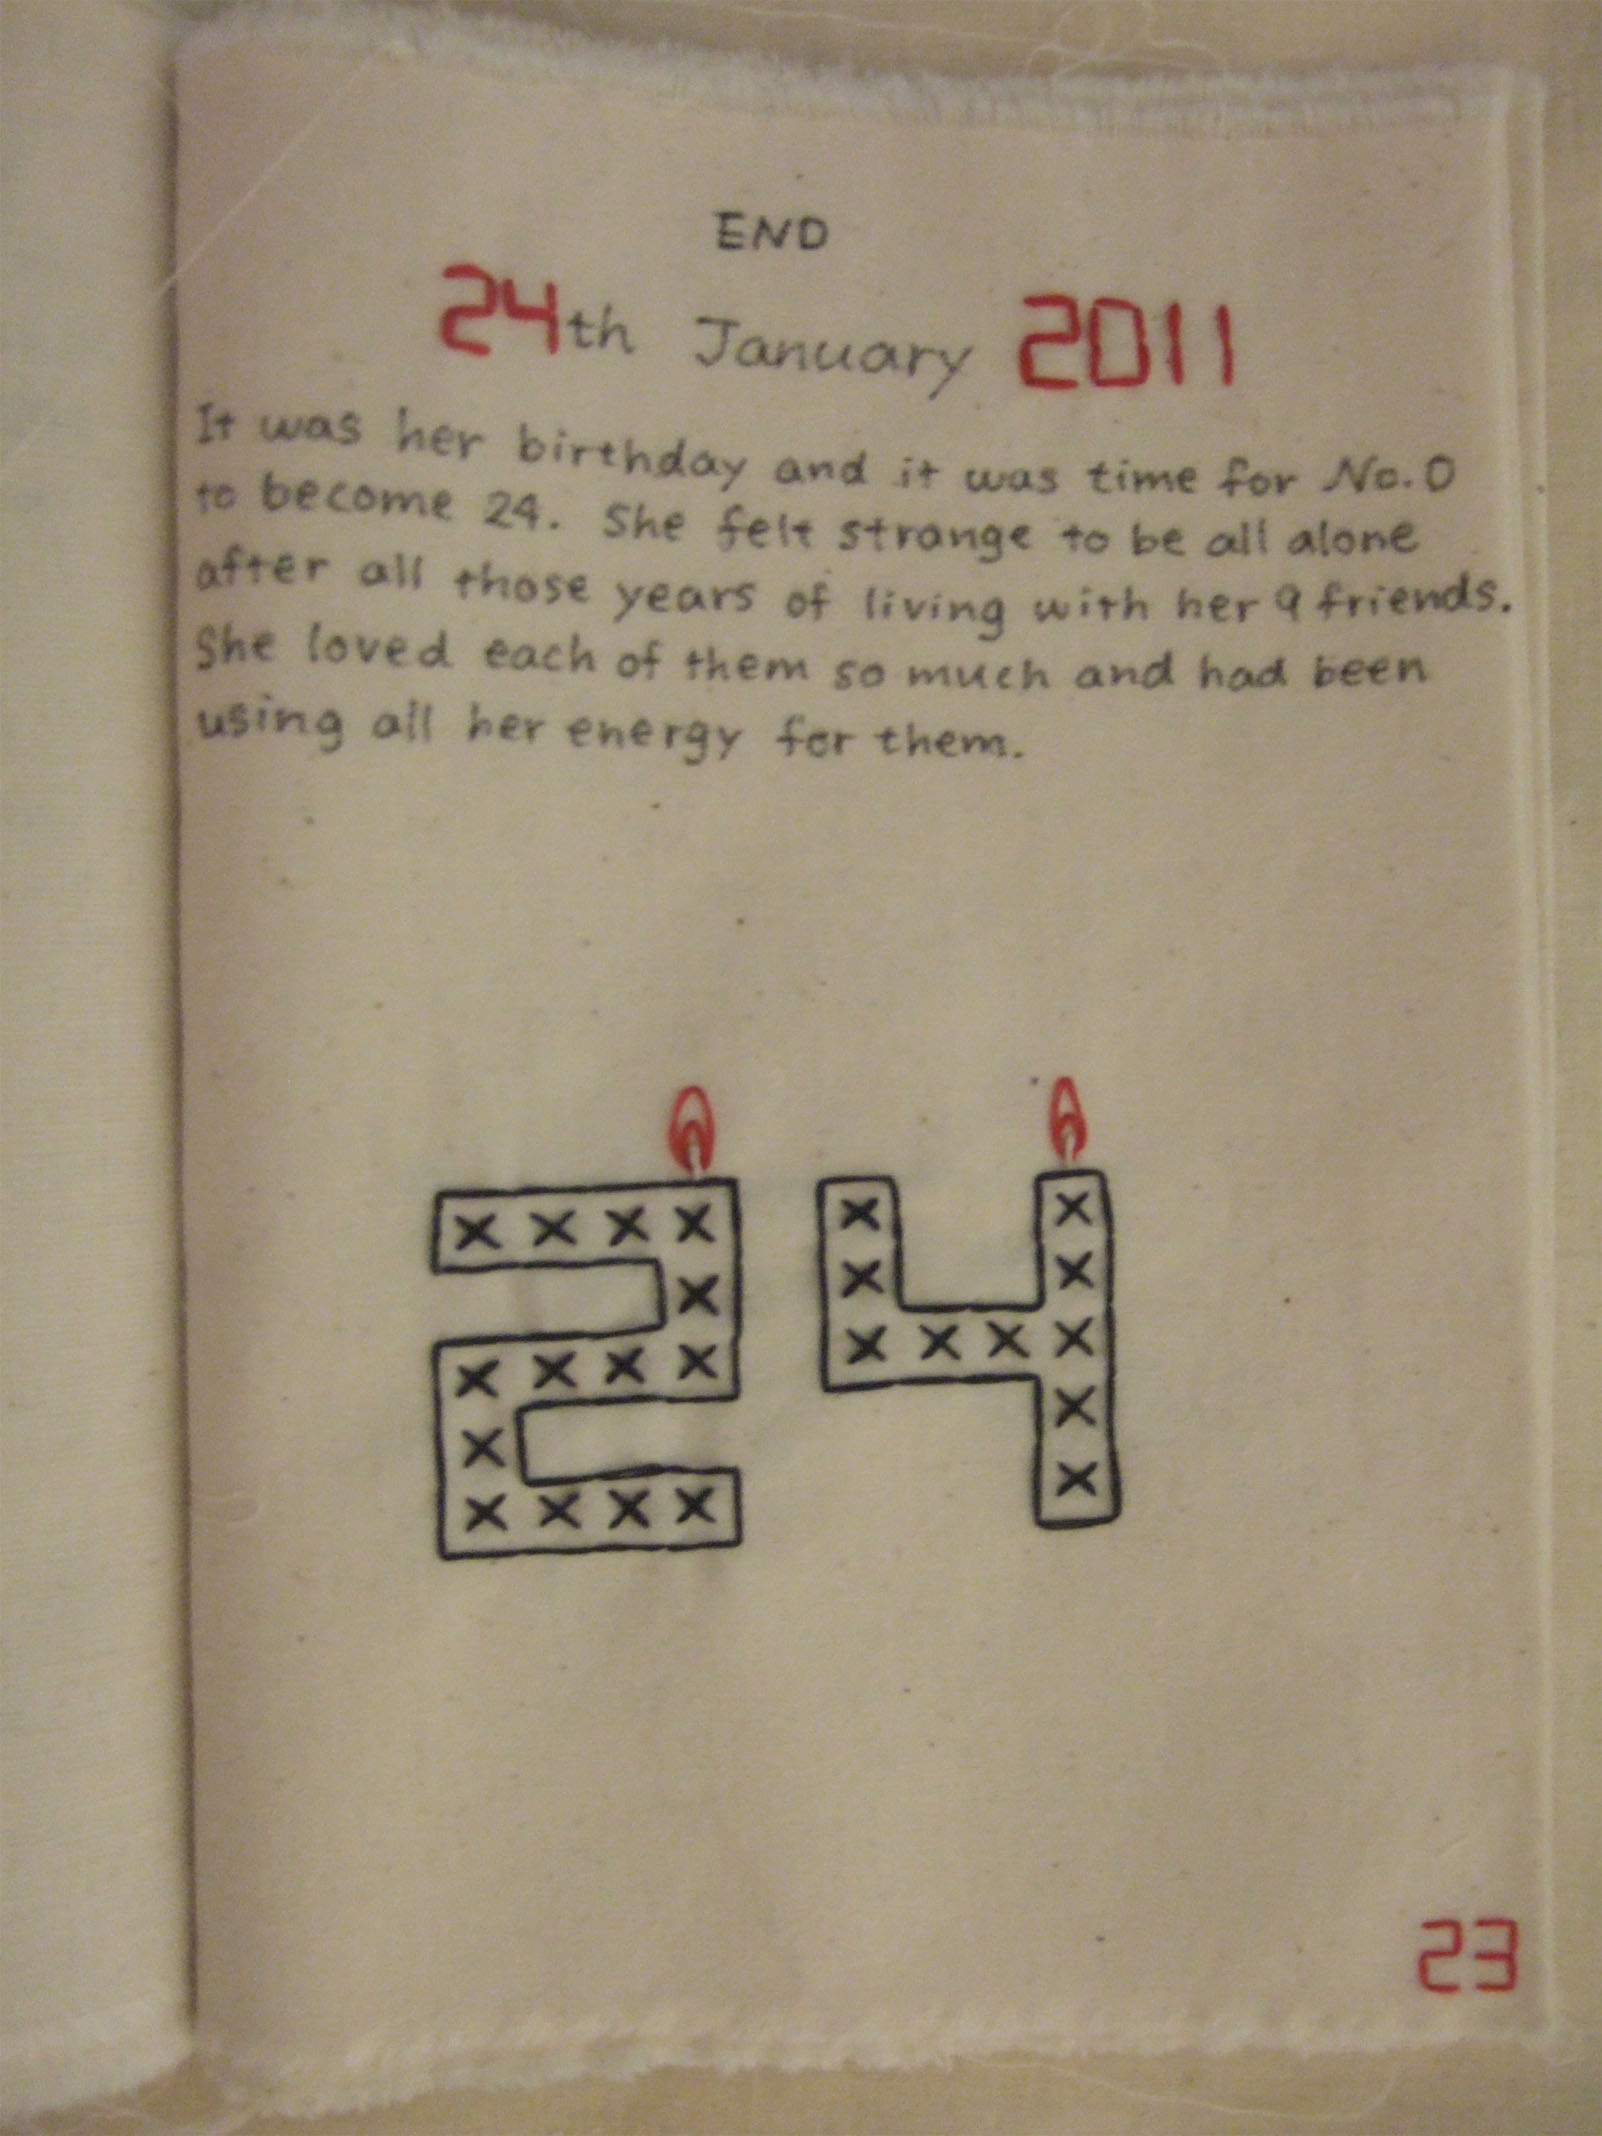 END
24th January 2011
It was her birthday and it was time for No.0
to become 24. She felt strange to be all alone
after all those years of living with her 9 friends.
She loved each of them so much and had been
using all her energy for them.
24
23